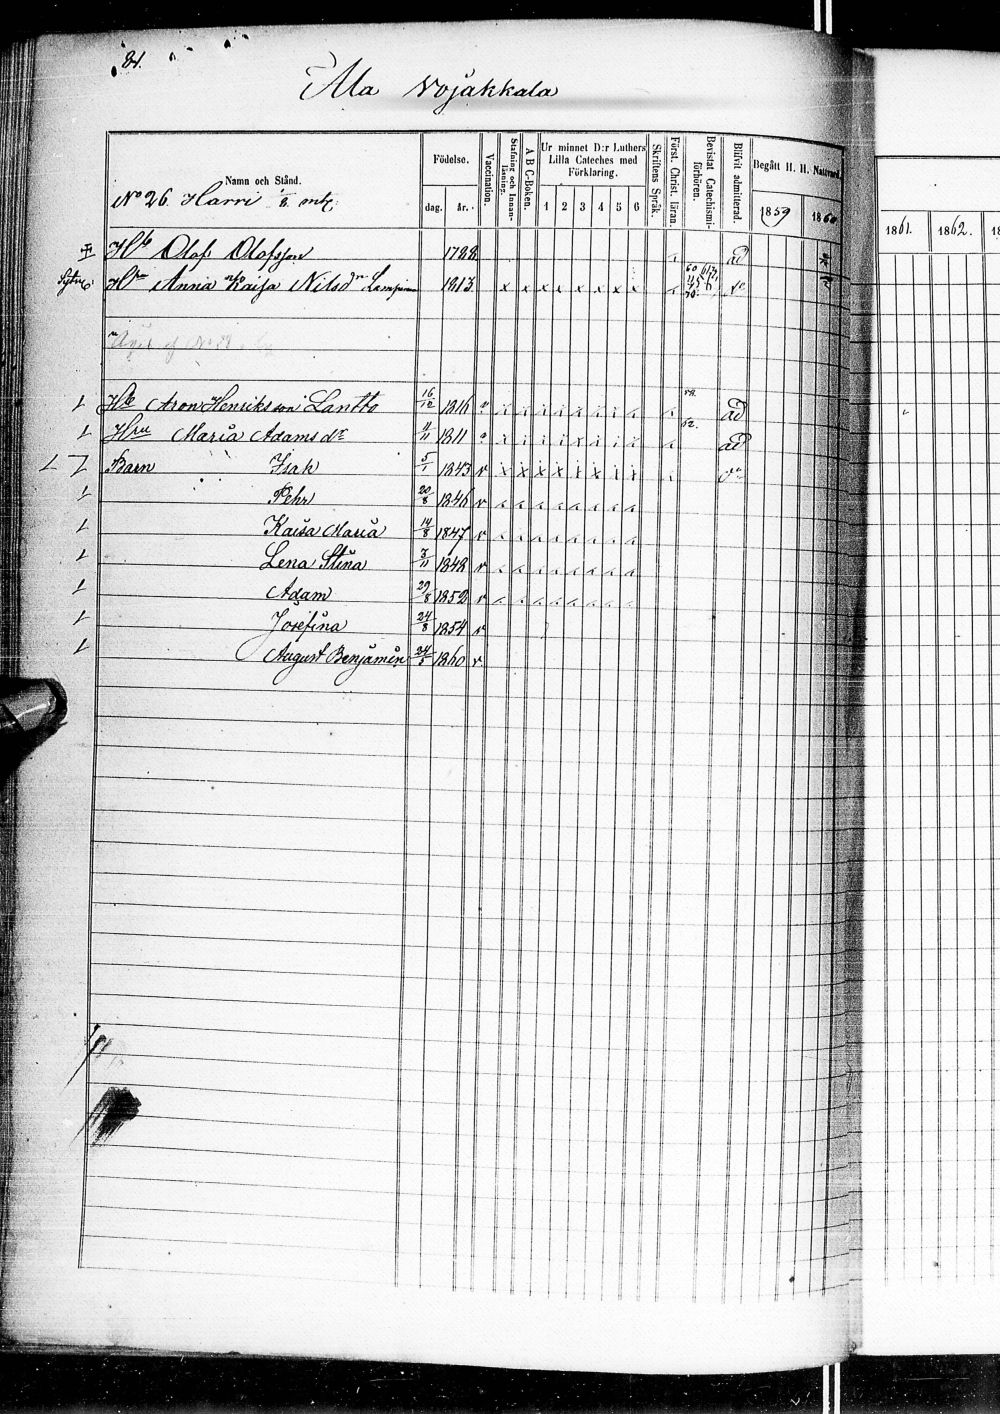 81.
Alla Vojakkala
Namn och Stånd.
Födelse.
dag. år.
Vaccination.
Stafning och Innanläsning.
A B C-Boken.
Ur minnet D:r Luthers Lilla Cateches med Förklaring.
1 2 3 4 5 6
Skriftens Språk.
Först. Christ. läran.
Bevistat Catechismiförhören.
Blifvit admitterad.
Begått H. H. Nattvard.
1859 1860 1861. 1862. 1
No 26 Harri mtl
Olof Olofsson 1788 ad
Anna Kaisa Nilsdr 1813 x x x x x x x x
Aron Henriksson Lantto 16/12 1816 v 58. ad
Hru Maria Adamsdr 11/11 1811 62. ad
Barn Isak 5/1 1843 v x x x x x x x x
Pehr 20/8 1846 v
Kaisa Maria 14/8 1847 v
Lena Stina 3/11 1848 v
Adam 29/8 1852 v
Josefina 24/8 1854 v
August Benjamin 24/5 1860 v